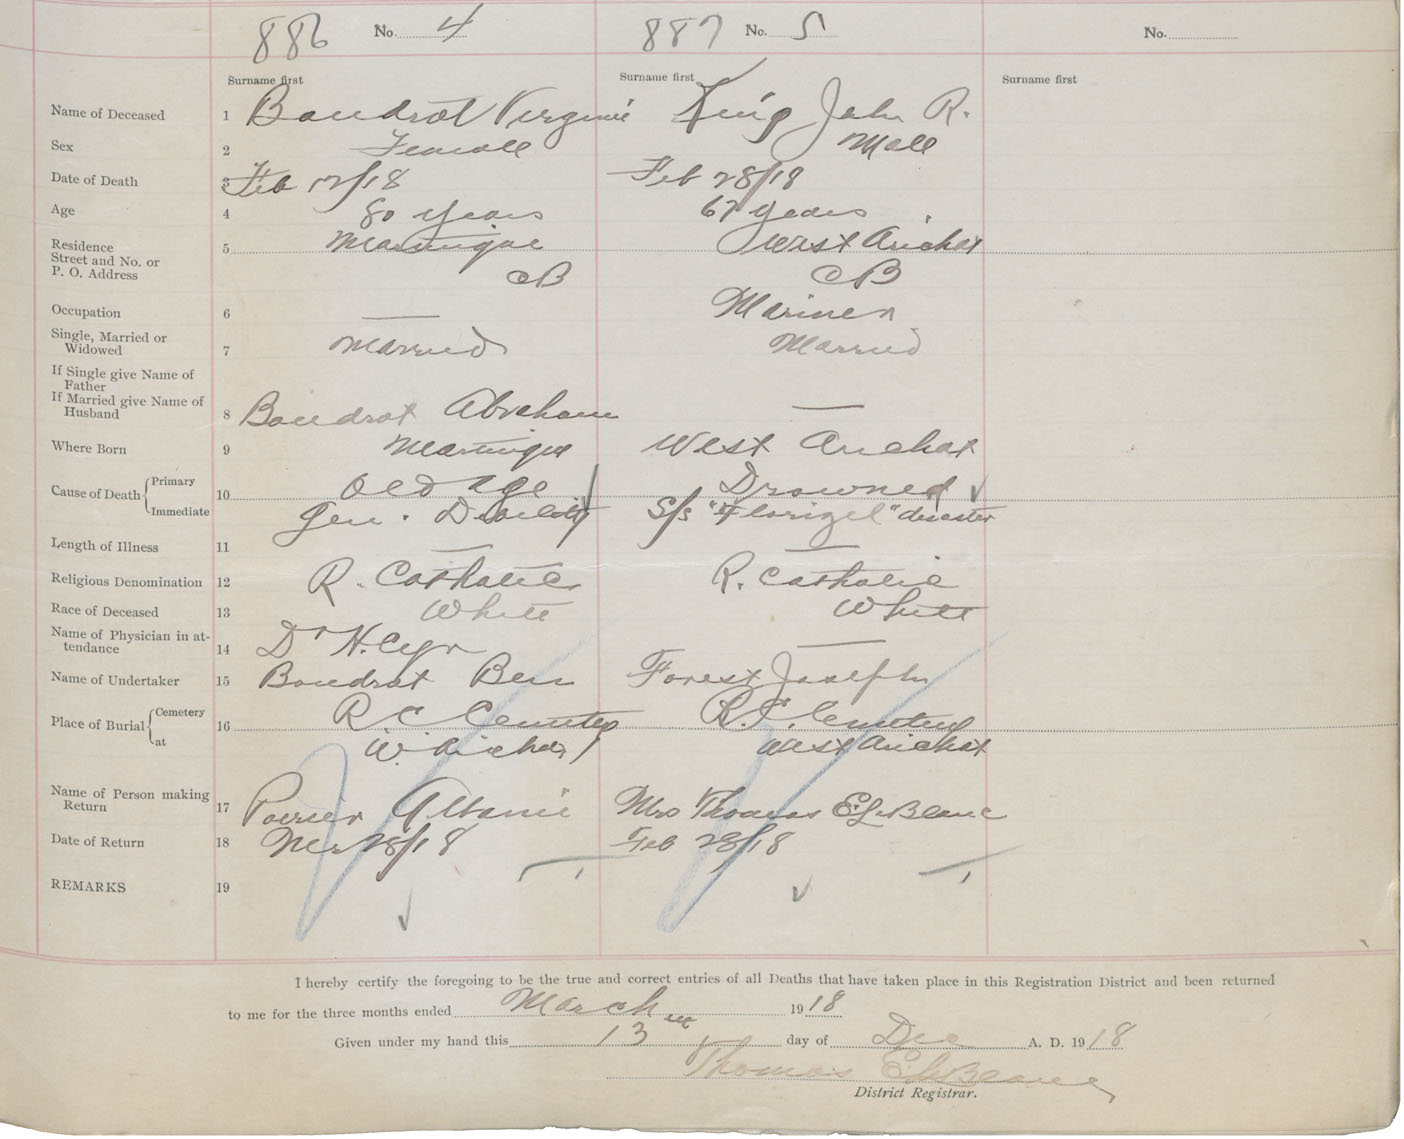 886 No. 4 887 No. 5 No.
Surname first Surname first Surname first
Name of Deceased 1 Boudrot Virginie King John R.
Sex 2 Female Male
Date of Death 3 Feb 12/18 Feb 28/18
Age 4 80 years 67 years
Residence 5 Martinique West Arichat
Street and No. or
P. O. Address CB CB
Occupation 6 — Mariner
Single, Married or
Widowed 7 Married Married
If Single give Name of
Father
If Married give Name of
Husband 8 Boudrot Abraham —
Where Born 9 Martinique West Arichat
Cause of Death Primary 10 Old Age Drowned
Immediate Gen. Debility S/S "Florizel" disaster
Length of Illness 11 — —
Religious Denomination 12 R. Catholic R. Catholic
Race of Deceased 13 White White
Name of Physician in at-
tendance 14 Dr H. Cyr —
Name of Undertaker 15 Boudrot Ben Forest Joseph
Place of Burial Cemetery 16 R. C. Cemetery R. C. Cemetery
at W. Arichat West Arichat
Name of Person making
Return 17 Poirier Albanie Mrs Thomas E. LeBlanc
Date of Return 18 28/18 Feb 28/18
REMARKS 19
I hereby certify the foregoing to be the true and correct entries of all Deaths that have taken place in this Registration District and been returned
to me for the three months ended March 1918
Given under my hand this 13 day of Dec A. D. 1918
Thomas E. LeBlanc
District Registrar.